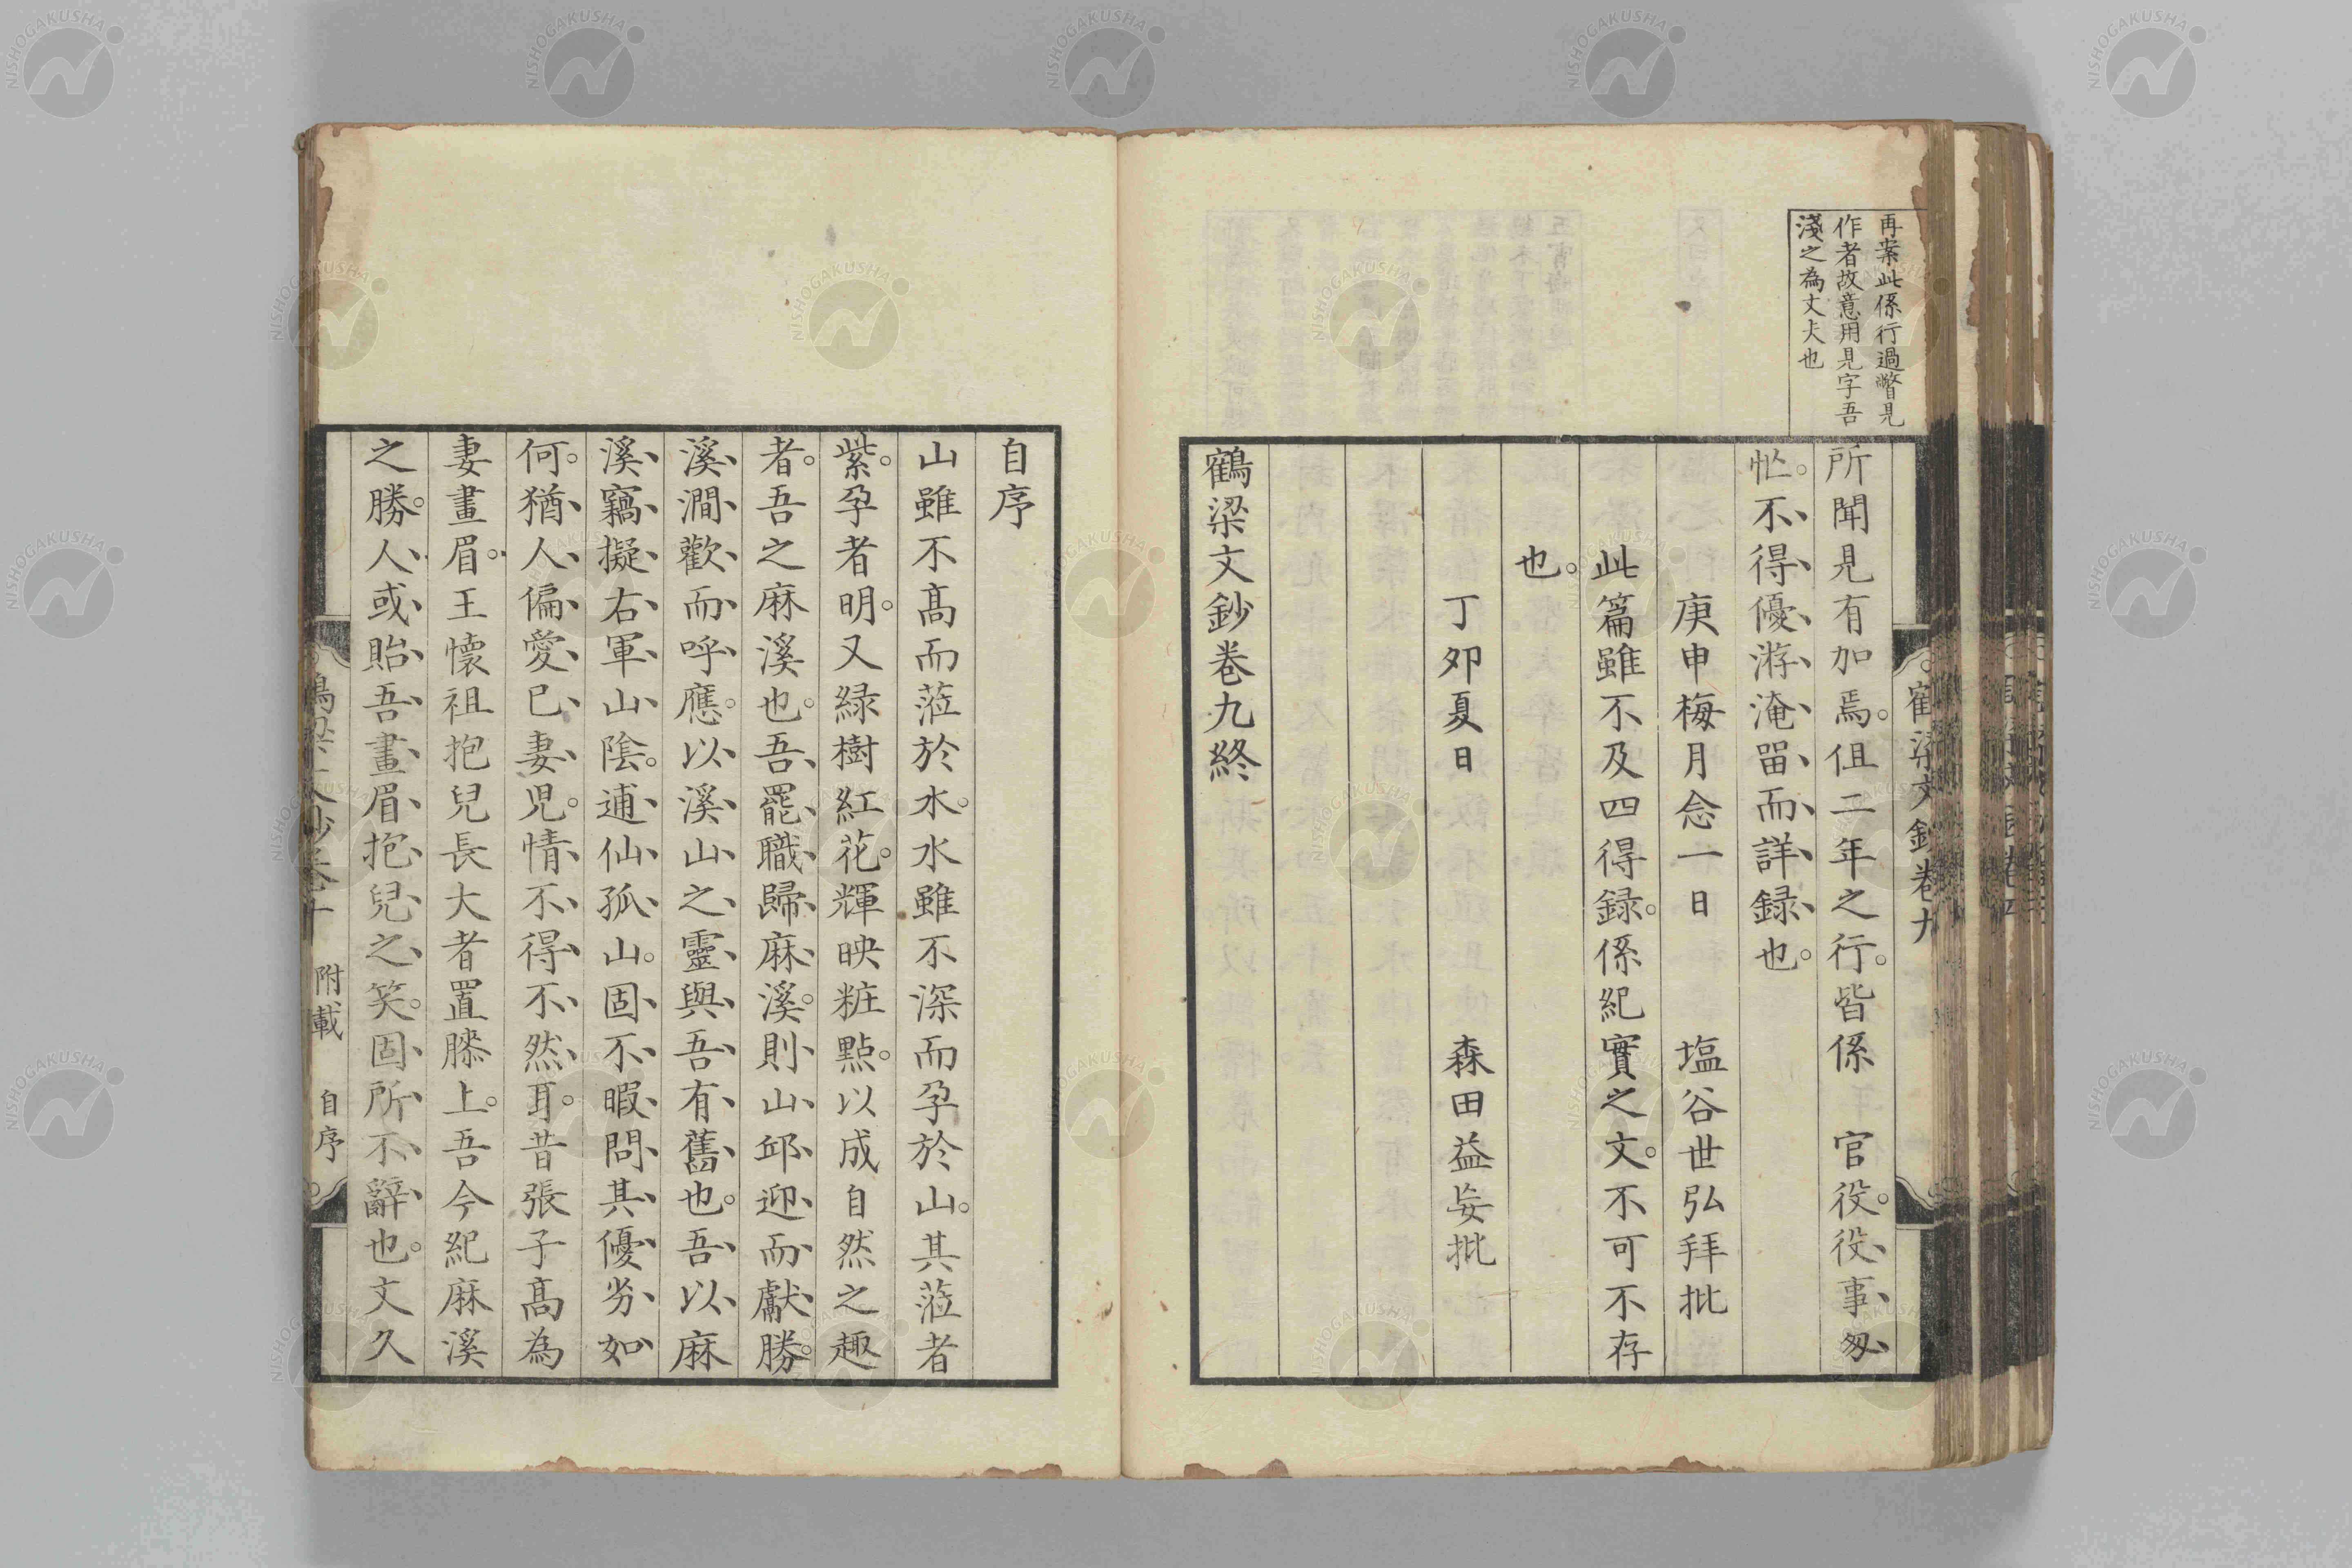 再案此係行過瞥見
作者故意用見字吾
淺之為丈夫也
所聞見有加焉。但二年之行。皆係　官役。役、事、匆、
忙。不、得、優、游、淹、留、而、詳、録、也。
庚申梅月念一日　塩谷世弘拜批
此篇雖不及四得録。係紀實之文。不可不存
也。
丁卯夏日　森田益妄批
鶴梁文鈔卷九終
鶴梁文鈔卷九
自序
山雖不髙而蒞於水。水雖不深而孕於山。其蒞者
紫。孕者明。又緑樹紅花。輝映粧點。以成自然之趣
者。吾之麻溪也。吾、罷、職、歸、麻、溪。則、山、邱、迎、而、獻、勝。
溪、澗、歡、而、呼、應。以、溪、山、之、靈、與、吾、有、舊、也。吾、以、麻
溪、竊、擬、右、軍、山、陰。逋、仙、孤、山。固、不、暇、問、其、優、劣、如
何。猶、人、偏、愛、已、妻、児。情、不、得、不、然、耳。昔張子髙為
妻畫眉。王懷祖抱兒長大者置膝上。吾今紀麻溪
之勝。人、或、貽、吾、畫、眉、抱、兒、之、笑。固、所、不、辭、也。文久
鶴梁文鈔卷十　附載　自序